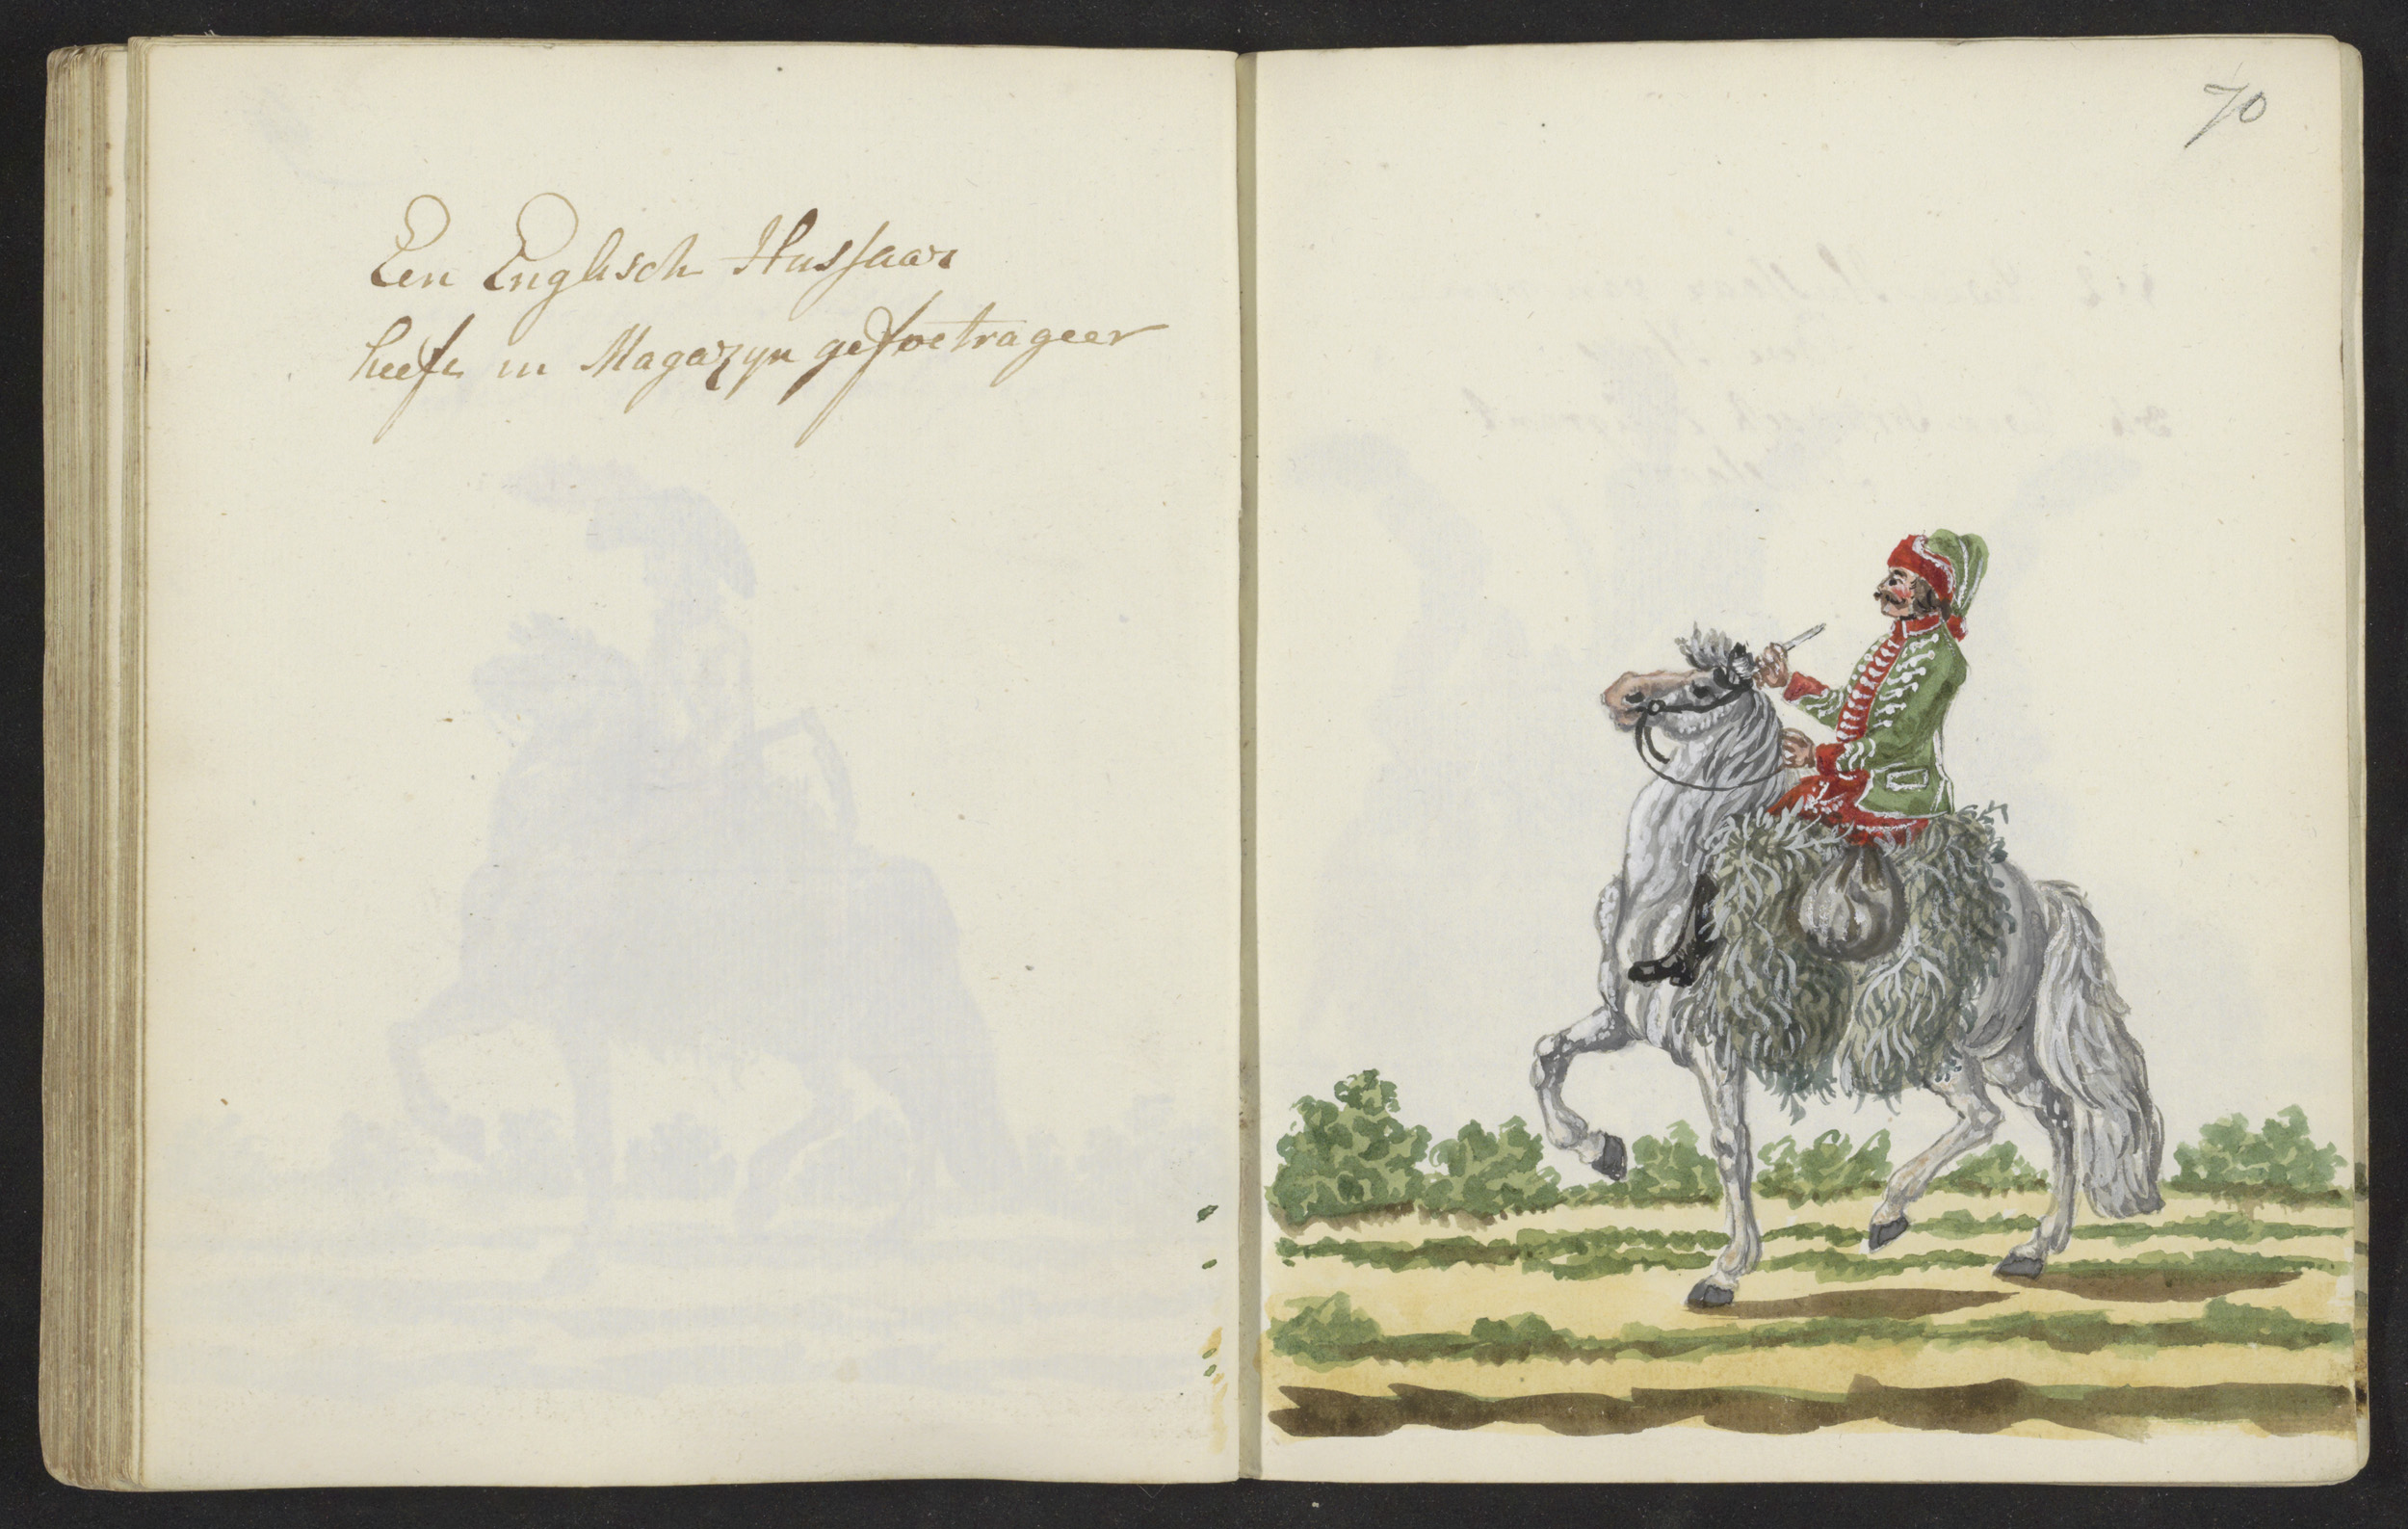 Een Englisch Hussaar
heeft in Magazyn gefoetrageer
70